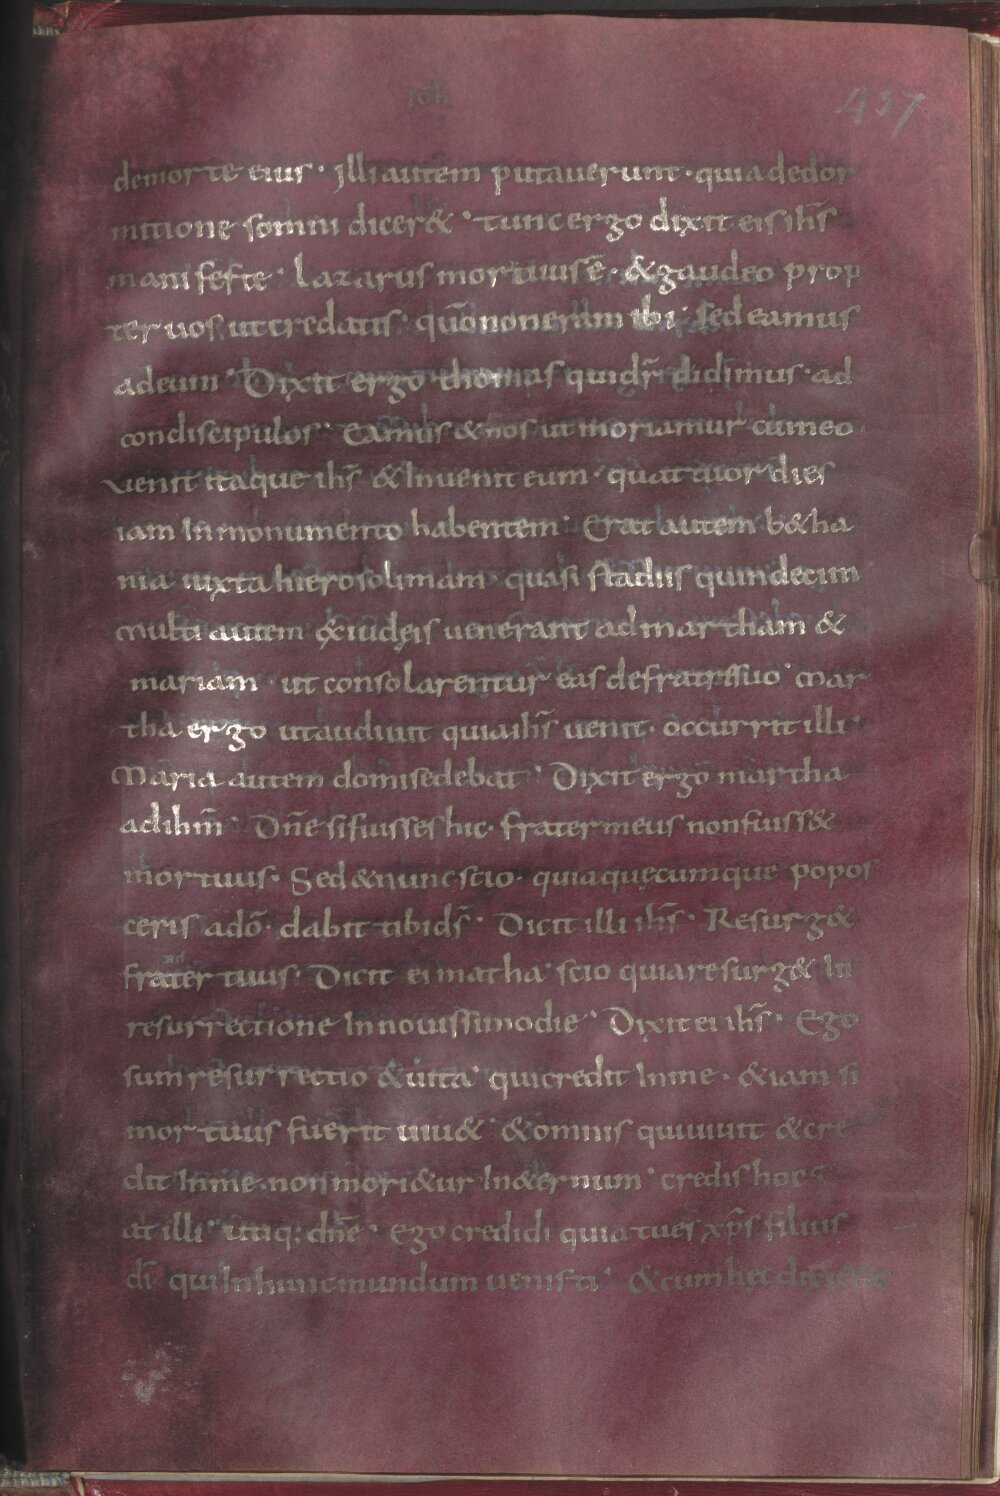 ioh
437
demorte eius · Illi autem putauerunt · quia dedor
mitione somni dicer& · tunc ergo dixit eis ih̅s
manifeste · Lazarus mortuus ē · & gaudeo prop
ter uos ut credatis · quō non eram ibi · sed eamus
ad eum · Dixit ergo thomas qui dr̄ didimus · ad
condiscipulos · Eamus & nos ut moriamur cum eo ·
venit itaque ih̅s & Inuenit eum · quattuor dies
iam In monumento habentem · Erat autem b&ha
nia iuxta hierosolimam · quasi stadiis quindecim
Multi autem ex iudęis uenerant ad martham &
mariam · ut consolarentur eas de fratre suo · Mar
tha ergo ut audiuit quia ih̅s uenit · occurrit illi ·
Maria autem domi sedebat · Dixit ergo martha
ad ih̅m · Dn̅e si fuisses hic · frater meus non fuiss&
mortuus · Sed & nunc scio · quia quęcumque popos
ceris a dō · dabit tibi ds̄ · Dicit illi ih̅s · Resurg&
frater tuus · Dicit ei matha · scio quia resurg& In
resurrectione In nouissimo die · Dixit ei ih̅s · Ego
sum resurrectio & uita · qui credit In me · & iam si
mortuus fuerit uiu& · & omnis qui uiuit & cre
dit In me · non mori&ur In &ernum · credis hoc
at illi · utiq; dn̅e · ego credidi quia tu es xp̅s filius
dī qui In hunc mundum uenisti · & cum hęc dixiss&